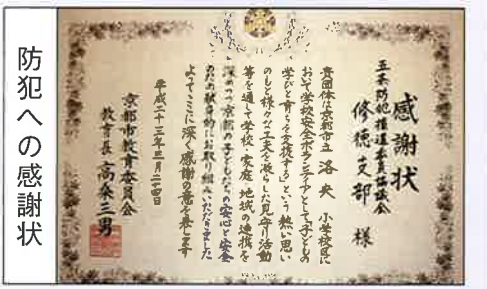 防犯への感謝状
感謝状
五条防犯推進委員協議会
修徳支部 様
貴団体は京都市立 洛央 小学校区に
おいて学校安全ボランティアとして子どもの
学びと育ちを支援するという熱い思い
のもと様々な工夫を凝らした見守り活動
等を通して学校・家庭・地域の連携を
深めつつ京都の子どもたちの安心と安全
のため献身的にお取り組みいただきました
よってここに深く感謝の意を表します
平成二十三年三月二十四日
京都市教育委員会
教育長 高桑三男